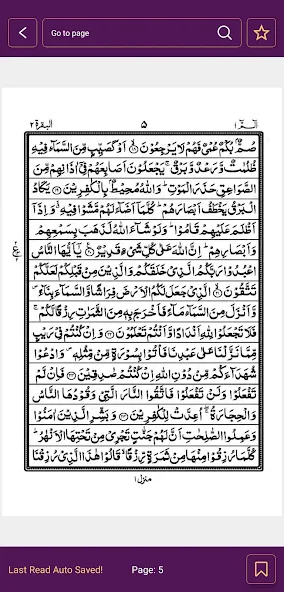 Go to page
الٓمّٓ ١
٥
البقرة ٢
صُمٌّۢ بُكْمٌ عُمْیٌ فَهُمْ لَا یَرْجِعُوْنَ ﴿۱۸﴾ اَوْ كَصَیِّبٍ مِّنَ السَّمَآءِ فِیْهِ
ظُلُمٰتٌ وَّ رَعْدٌ وَّ بَرْقٌ ۚ یَجْعَلُوْنَ اَصَابِعَهُمْ فِیْۤ اٰذَانِهِمْ مِّنَ
الصَّوَاعِقِ حَذَرَ الْمَوْتِ ؕ وَ اللّٰهُ مُحِیْطٌۢ بِالْكٰفِرِیْنَ ﴿۱۹﴾ یَكَادُ
الْبَرْقُ یَخْطَفُ اَبْصَارَهُمْ ؕ كُلَّمَاۤ اَضَآءَ لَهُمْ مَّشَوْا فِیْهِ ۙ وَ اِذَاۤ
اَظْلَمَ عَلَیْهِمْ قَامُوْا ؕ وَ لَوْ شَآءَ اللّٰهُ لَذَهَبَ بِسَمْعِهِمْ
وَ اَبْصَارِهِمْ ؕ اِنَّ اللّٰهَ عَلٰی كُلِّ شَیْءٍ قَدِیْرٌ ﴿۲۰﴾ یٰۤاَیُّهَا النَّاسُ
اعْبُدُوْا رَبَّكُمُ الَّذِیْ خَلَقَكُمْ وَ الَّذِیْنَ مِنْ قَبْلِكُمْ لَعَلَّكُمْ
تَتَّقُوْنَ ﴿۲۱﴾ الَّذِیْ جَعَلَ لَكُمُ الْاَرْضَ فِرَاشًا وَّ السَّمَآءَ بِنَآءً ۪
وَّ اَنْزَلَ مِنَ السَّمَآءِ مَآءً فَاَخْرَجَ بِهٖ مِنَ الثَّمَرٰتِ رِزْقًا لَّكُمْ ۚ
فَلَا تَجْعَلُوْا لِلّٰهِ اَنْدَادًا وَّ اَنْتُمْ تَعْلَمُوْنَ ﴿۲۲﴾ وَ اِنْ كُنْتُمْ فِیْ رَیْبٍ
مِّمَّا نَزَّلْنَا عَلٰی عَبْدِنَا فَاْتُوْا بِسُوْرَةٍ مِّنْ مِّثْلِهٖ ۪ وَ ادْعُوْا
شُهَدَآءَكُمْ مِّنْ دُوْنِ اللّٰهِ اِنْ كُنْتُمْ صٰدِقِیْنَ ﴿۲۳﴾ فَاِنْ لَّمْ
تَفْعَلُوْا وَ لَنْ تَفْعَلُوْا فَاتَّقُوا النَّارَ الَّتِیْ وَ قُوْدُهَا النَّاسُ
وَ الْحِجَارَةُ ۖۚ اُعِدَّتْ لِلْكٰفِرِیْنَ ﴿۲۴﴾ وَ بَشِّرِ الَّذِیْنَ اٰمَنُوْا
وَ عَمِلُوا الصّٰلِحٰتِ اَنَّ لَهُمْ جَنّٰتٍ تَجْرِیْ مِنْ تَحْتِهَا الْاَنْهٰرُ ؕ
كُلَّمَا رُزِقُوْا مِنْهَا مِنْ ثَمَرَةٍ رِّزْقًا ۙ قَالُوْا هٰذَا الَّذِیْ رُزِقْنَا
منزل ١
Last Read Auto Saved!
Page: 5